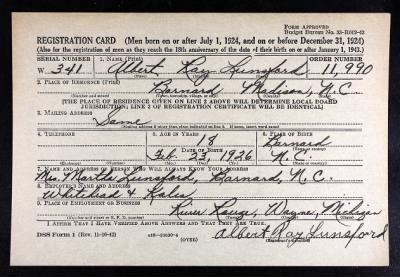 Form Approved
Budget Bureau No. 33-R012-42
REGISTRATION CARD—(Men born on or after July 1, 1924, and on or before December 31, 1924)
(Also for the registration of men as they reach the 18th anniversary of the date of their birth on or after January 1, 1943.)
SERIAL NUMBER 1. NAME (Print) ORDER NUMBER
W 341 Albert Ray Lunsford 11,990
2. PLACE OF RESIDENCE (Print)
Barnard Madison, N.C.
[THE PLACE OF RESIDENCE GIVEN ON LINE 2 ABOVE WILL DETERMINE LOCAL BOARD
JURISDICTION; LINE 2 OF REGISTRATION CERTIFICATE WILL BE IDENTICAL]
3. MAILING ADDRESS
Same
[Mailing address if other than place indicated on line 2. If same, insert word same]
4. TELEPHONE 5. AGE IN YEARS 6. PLACE OF BIRTH
18 Barnard
DATE OF BIRTH
Feb. 23, 1926 N.C.
7. NAME AND ADDRESS OF PERSON WHO WILL ALWAYS KNOW YOUR ADDRESS
Mrs. Martha Lunsford, Barnard, N.C.
8. EMPLOYER'S NAME AND ADDRESS
9. PLACE OF EMPLOYMENT OR BUSINESS
River Rouge, Wayne, Michigan
I AFFIRM THAT I HAVE VERIFIED ABOVE ANSWERS AND THAT THEY ARE TRUE.
DSS Form 1 (Rev. 11-16-42) (OVER) Albert Ray Lunsford